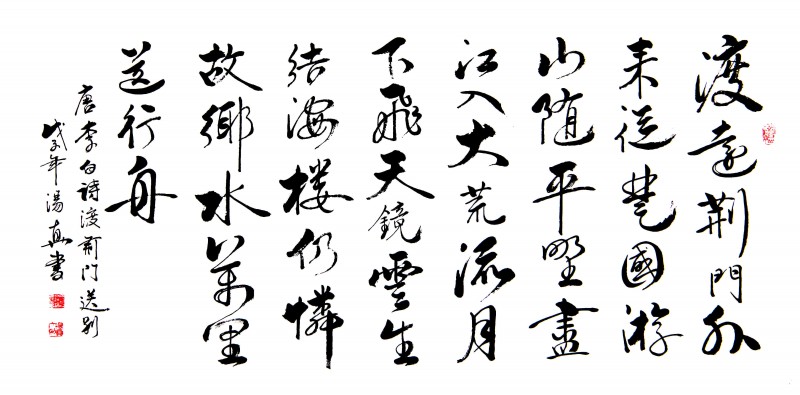 渡遠荆門外
来從楚國游
山随平野盡
江入大荒流月
下飛天鏡雲生
结海楼仍憐
故鄉水萬里
送行舟
唐李白诗渡荆门送别
年湯真書